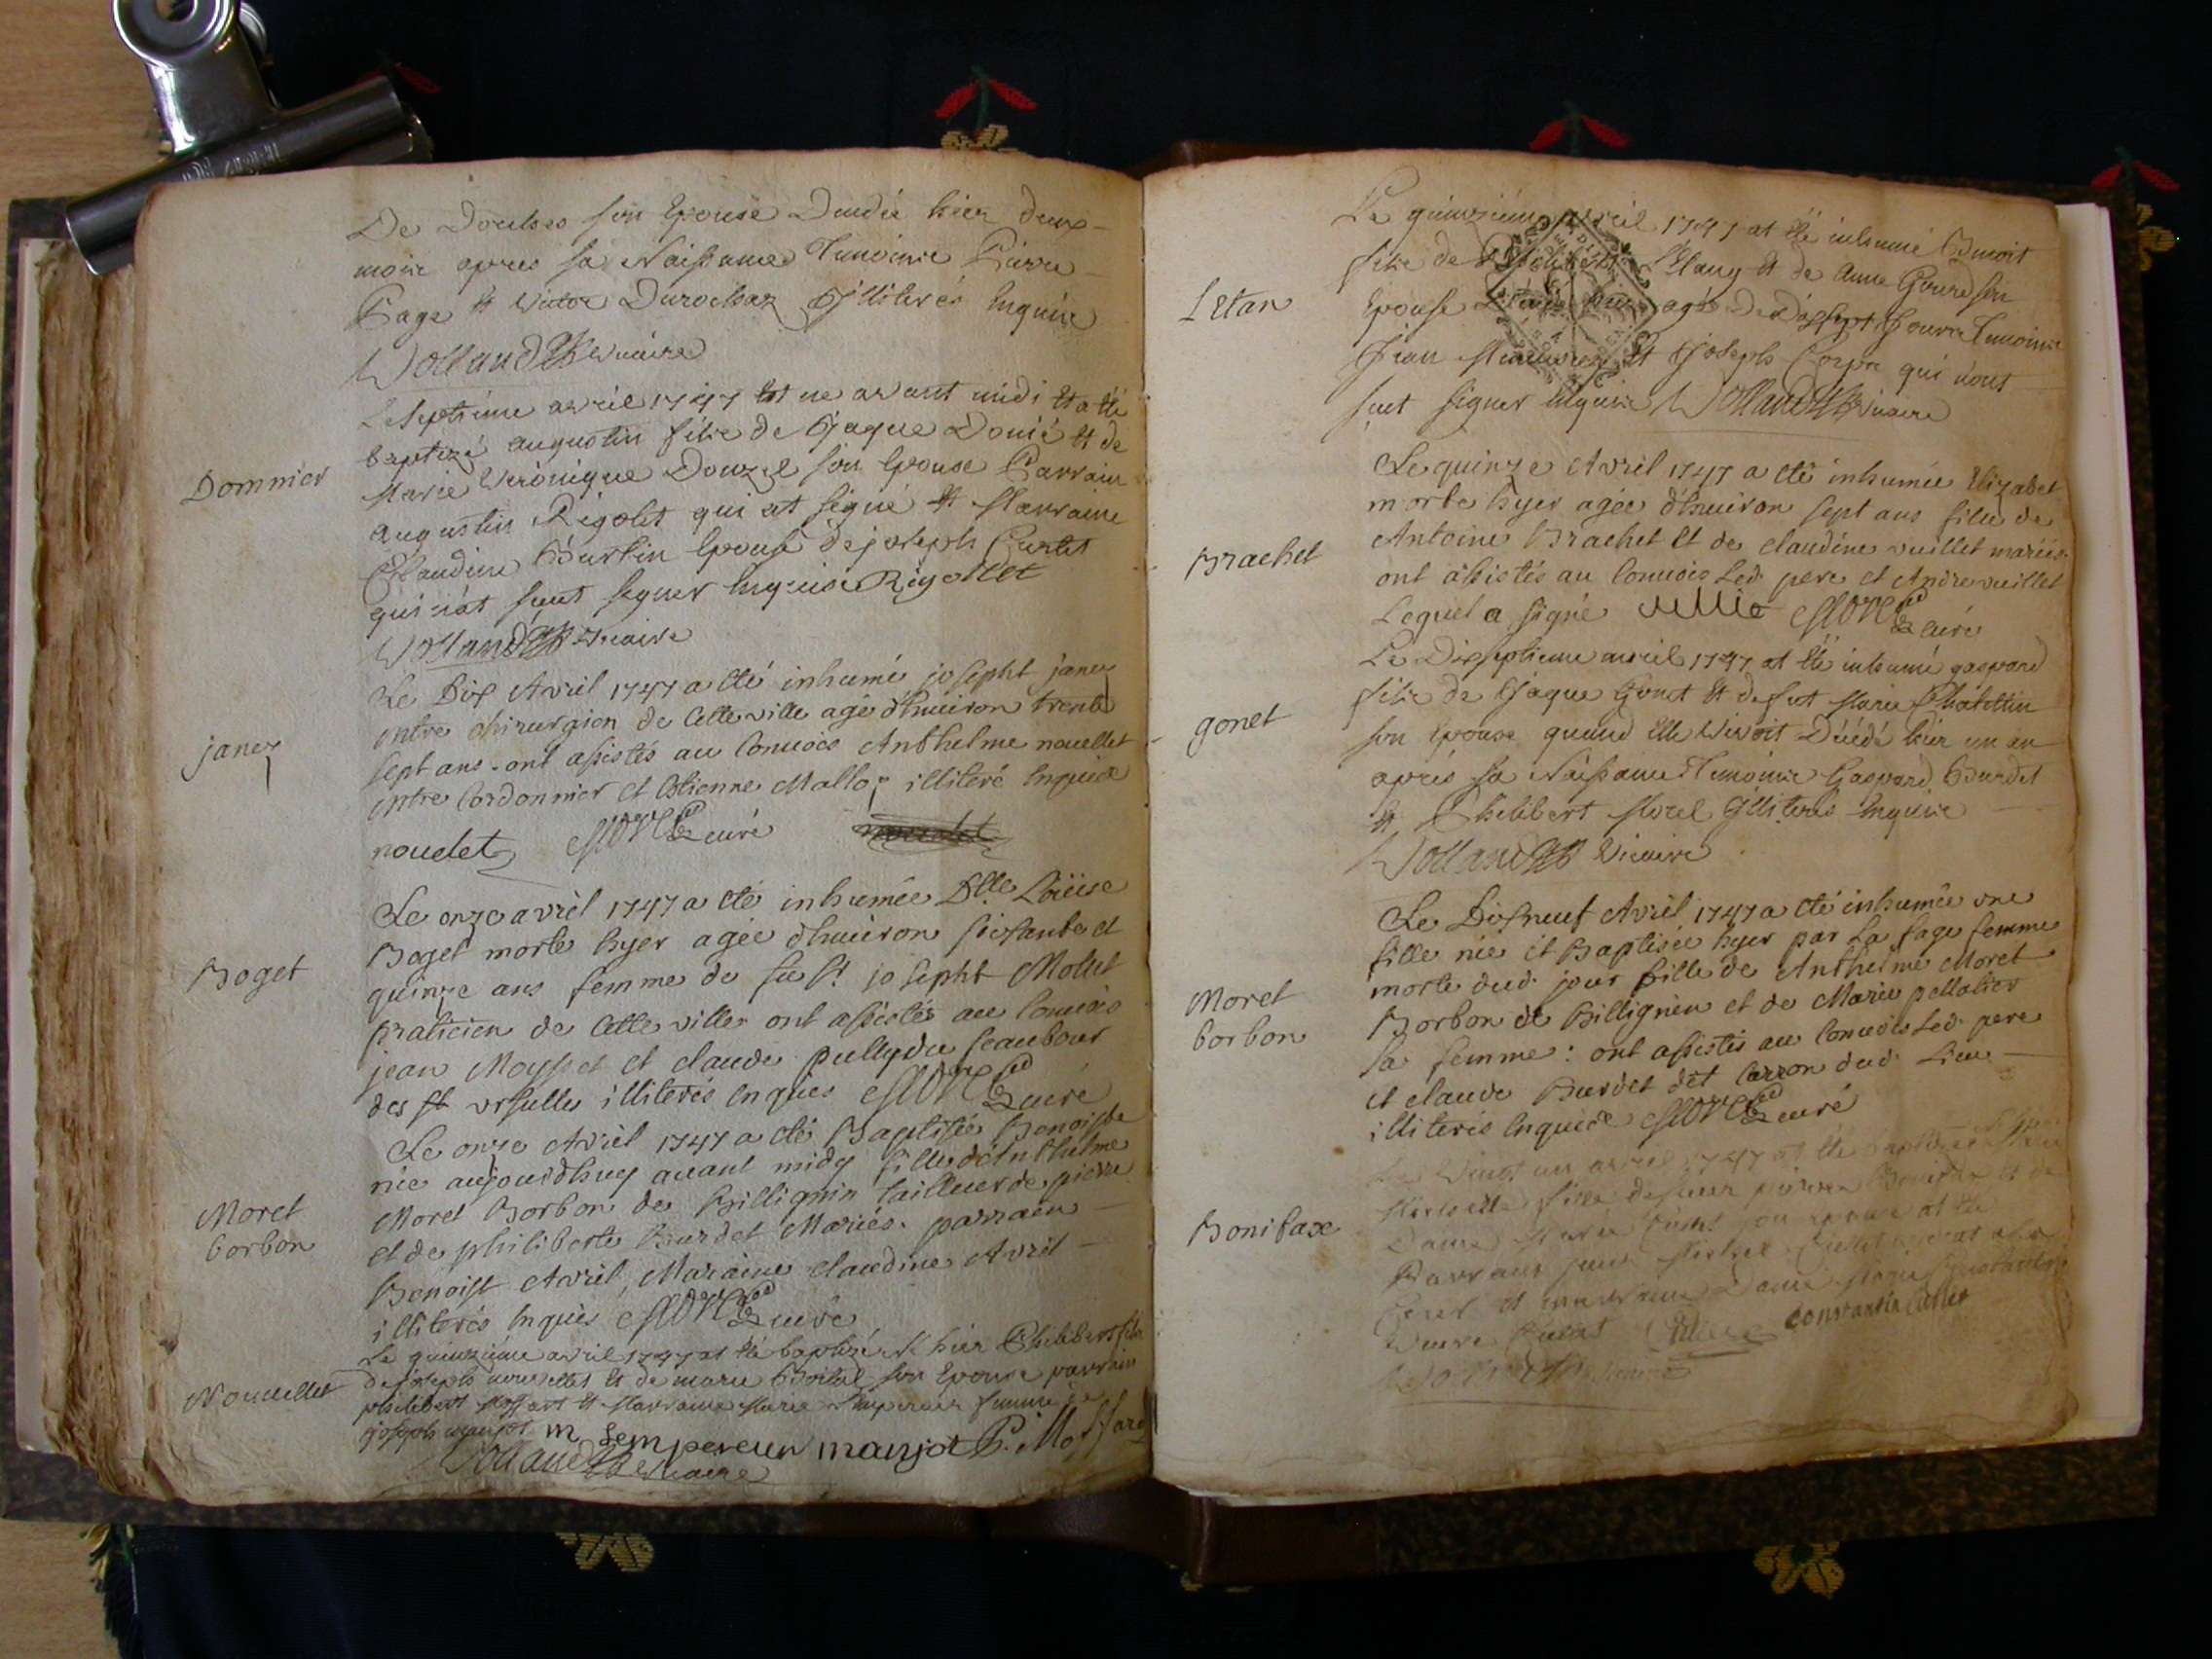 De Doulses son Epouse Decedé hier deux
mois apres sa Naissance Temoins Pierre
Page et Victor Durochaz Illiterés Enquire
Volland vicaire
Domnier
Le septième avril 1747 est né avant midi et a été
baptizé augustin fils de Jaque Domié et de
Marie Véronique Douzel son Epouse Parrain
augustin Rigolet qui at signé et Marraine
Claudine Burtin Epouse de joseph Curtet
qui n'at sçeut signer Enquise Rigollet
Volland vicaire
janey
Le Dix Avril 1747 a été inhumé josepht janey
mtre chirurgien de cette ville agé d'huiron trente
sept ans. ont assistés au convois Anthelme nouellet
mtre Cordonnier et Etienne Mallog illiteré Enquis
nouelet curé
Boget
Le onze avril 1747 a été inhumée Dlle Loüise
Boget morte hyer agée d'huiron soixante et
quinze ans femme de feu Sr josepht Mollet
praticien de cette ville ont assistés au convois
jean Moysset et claude pully du feaubour
des ste ursulles illiterés Enquis curé
Moret
borbon
Le onze Avril 1747 a été Baptisée Benoiste
née aujourd'huy avant midy fille d'Anthelme
Moret Borbon de Billignin tailleur de pierre
et de philiberte Burdet Mariés. parrain
Benoist Avril, Maraine claudine Avril
illiterés Enquis curé
Nouuellet
Le quinzième avril 1747 at été baptizé Né hier Philibert fils
de joseph nouvellet et de marie Boital son Epouse parrain
philibert Moffart et Marraine Marie Lempereur femme de
joseph manjot m Lempereur manjot P. Moffard
Volland vicaire
Letan
Le quinzième avril 1747 at été inhumé Benoit
fils de L'Etang et de Anne Goured son
Epouse agé De Dixsept Jours Temoins
Jean et Joseph Corpn qui n'ont
sçeut signer Enquis Volland vicaire
Brachet
Le quinze Avril 1747 a été inhumée Elizabet
morte hyer agée d'huiron sept ans fille de
Antoine Brachet et de claudine vuillet mariés.
ont assistés au convois Led. pere et Andre vuillet
Lequel a signé curé
gonet
Le Dixseptieme avril 1747 at été inhumé gaspard
fils de Jaque Gonet et defunt Marie Chatettin
son Epouse quand Elle Vivoit Décédé hier un an
aprés sa Naissance Temoins Gaspard Burdet
et Philibert Morel Illiterés Enquire
Volland Vicaire
Moret
borbon
Le Dixneuf Avril 1747 a été inhumée une
fille née et Baptisée hyer par La sage femme
morte dud. jour fille de Anthelme Moret
Borbon de Billignin et de Marie pellatier
sa femme: ont assistés au convois Led. pere
et claude Burdet det Carron dud. Lieu
illiterés Enquis curé
Bonifax
Le Vingt un avril 1747 at été baptizée
fille de sieur pierre et de
Dame Marie
Parrain
et marraine Dame Marie
Constantin Cullet